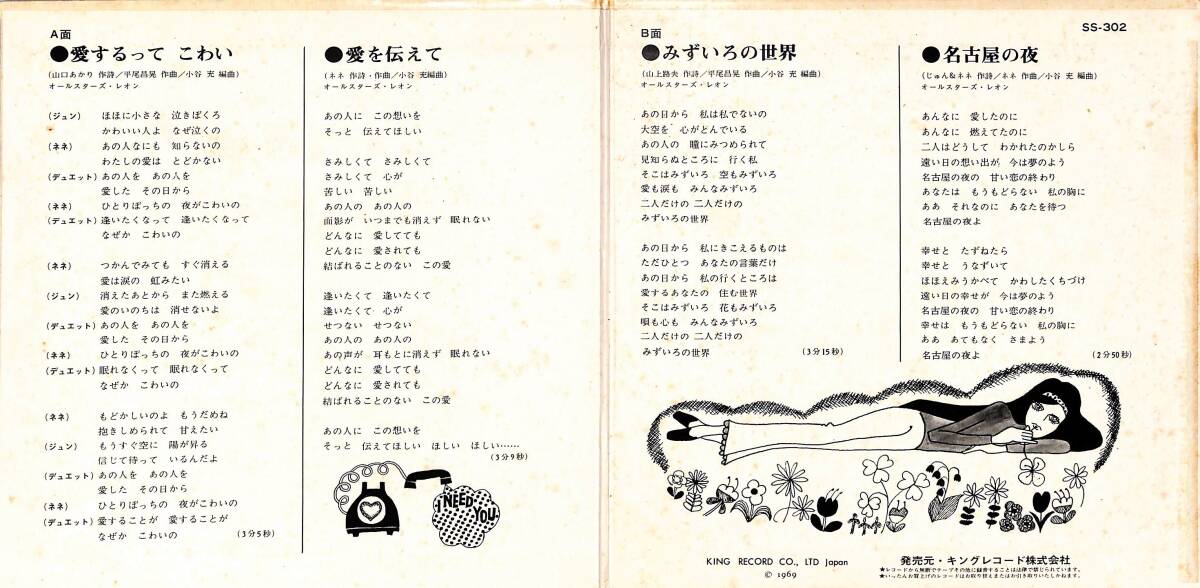 A面
●愛するって こわい
(山口あかり 作詩/平尾昌晃 作曲/小谷 充 編曲)
オールスターズ・レオン
(ジュン) ほほに小さな 泣きぼくろ
かわいい人よ なぜ泣くの
(ネネ) あの人なにも 知らないの
わたしの愛は とどかない
(デュエット) あの人を あの人を
愛した その日から
(ネネ) ひとりぼっちの 夜がこわいの
(デュエット) 逢いたくなって 逢いたくなって
なぜか こわいの
(ネネ) つかんでみても すぐ消える
愛は涙の 虹みたい
(ジュン) 消えたあとから また燃える
愛のいのちは 消せないよ
(デュエット) あの人を あの人を
愛した その日から
(ネネ) ひとりぼっちの 夜がこわいの
(デュエット) 眠れなくって 眠れなくって
なぜか こわいの
(ネネ) もどかしいのよ もうだめね
抱きしめられて 甘えたい
(ジュン) もうすぐ空に 陽が昇る
信じて待って いるんだよ
(デュエット) あの人を あの人を
愛した その日から
(ネネ) ひとりぼっちの 夜がこわいの
(デュエット) 愛することが 愛することが
なぜか こわいの (3分5秒)
●愛を伝えて
(ネネ 作詩・作曲/小谷 充編曲)
オールスターズ・レオン
あの人に この想いを
そっと 伝えてほしい
さみしくて さみしくて
さみしくて 心が
苦しい 苦しい
あの人の あの人の
面影が いつまでも消えず 眠れない
どんなに 愛してても
どんなに 愛されても
結ばれることのない この愛
逢いたくて 逢いたくて
逢いたくて 心が
せつない せつない
あの人の あの人の
あの声が 耳もとに消えず 眠れない
どんなに 愛してても
どんなに 愛されても
結ばれることのない この愛
あの人に この想いを
そっと 伝えてほしい ほしい ほしい……
(3分9秒)
I NEED
YOU
B面
●みずいろの世界
(山上路夫 作詩/平尾昌晃 作曲/小谷 充 編曲)
オールスターズ・レオン
あの日から 私は私でないの
大空を 心がとんでいる
あの人の 瞳にみつめられて
見知らぬところに 行く私
そこはみずいろ 空もみずいろ
愛も涙も みんなみずいろ
二人だけの 二人だけの
みずいろの世界
あの日から 私にきこえるものは
ただひとつ あなたの言葉だけ
あの日から 私の行くところは
愛するあなたの 住む世界
そこはみずいろ 花もみずいろ
唄も心も みんなみずいろ
二人だけの 二人だけの
みずいろの世界 (3分15秒)
SS-302
●名古屋の夜
(じゅん&ネネ 作詩/ネネ 作曲/小谷 充 編曲)
オールスターズ・レオン
あんなに 愛したのに
あんなに 燃えてたのに
二人はどうして わかれたのかしら
遠い日の想い出が 今は夢のよう
名古屋の夜の 甘い恋の終わり
あなたは もうもどらない 私の胸に
ああ それなのに あなたを待つ
名古屋の夜よ
幸せと たずねたら
幸せと うなずいて
ほほえみうかべて かわしたくちづけ
遠い日の幸せが 今は夢のよう
名古屋の夜の 甘い恋の終わり
幸せは もうもどらない 私の胸に
ああ あてもなく さまよう
名古屋の夜よ (2分50秒)
KING RECORD CO., LTD Japan
© 1969
発売元・キングレコード株式会社
★レコードから無断でテープその他に録音することは法律で禁じられています。
★いったんお買上げのレコードはお取り替えまたはお引き取りいたしかねます。